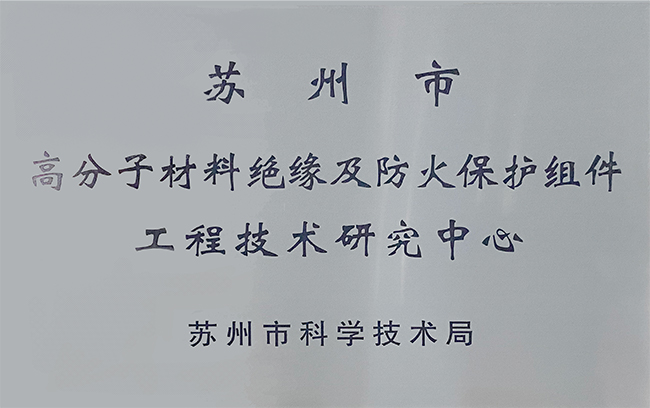 苏州市
高分子材料绝缘及防火保护组件
工程技术研究中心
苏州市科学技术局